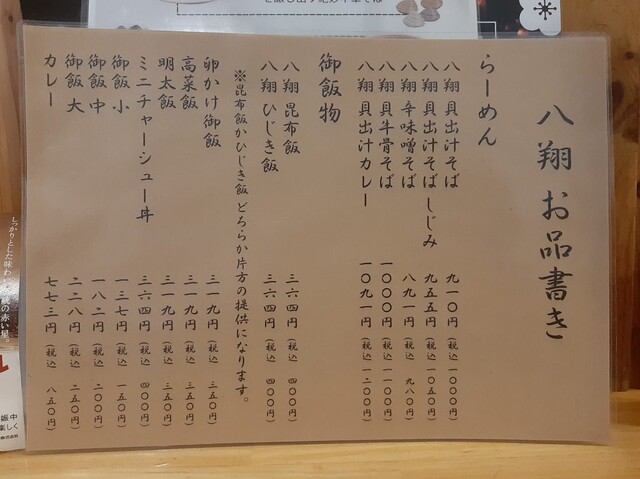 八翔 お品書き
らーめん
八翔 貝出汁そば 九一〇円 (税込 一〇〇〇円)
八翔 貝出汁そば しじみ 九五五円 (税込 一〇五〇円)
八翔 辛味噌そば 八九一円 (税込 九八〇円)
八翔 貝牛骨そば 一〇〇〇円 (税込 一一〇〇円)
八翔 貝出汁カレー 一〇九一円 (税込 一二〇〇円)
御飯物
八翔 昆布飯 三六四円 (税込 四〇〇円)
八翔 ひじき飯 三六四円 (税込 四〇〇円)
※昆布飯かひじき飯 どちらか片方の提供になります。
卵かけ御飯 三一九円 (税込 三五〇円)
高菜飯 三一九円 (税込 三五〇円)
明太飯 三一九円 (税込 三五〇円)
ミニチャーシュー丼 三六四円 (税込 四〇〇円)
御飯 小 一三七円 (税込 一五〇円)
御飯 中 一八二円 (税込 二〇〇円)
御飯 大 二二八円 (税込 二五〇円)
カレー 七七三円 (税込 八五〇円)
しっかりとした味わい
の赤い星
娠中
楽しく
株式会社